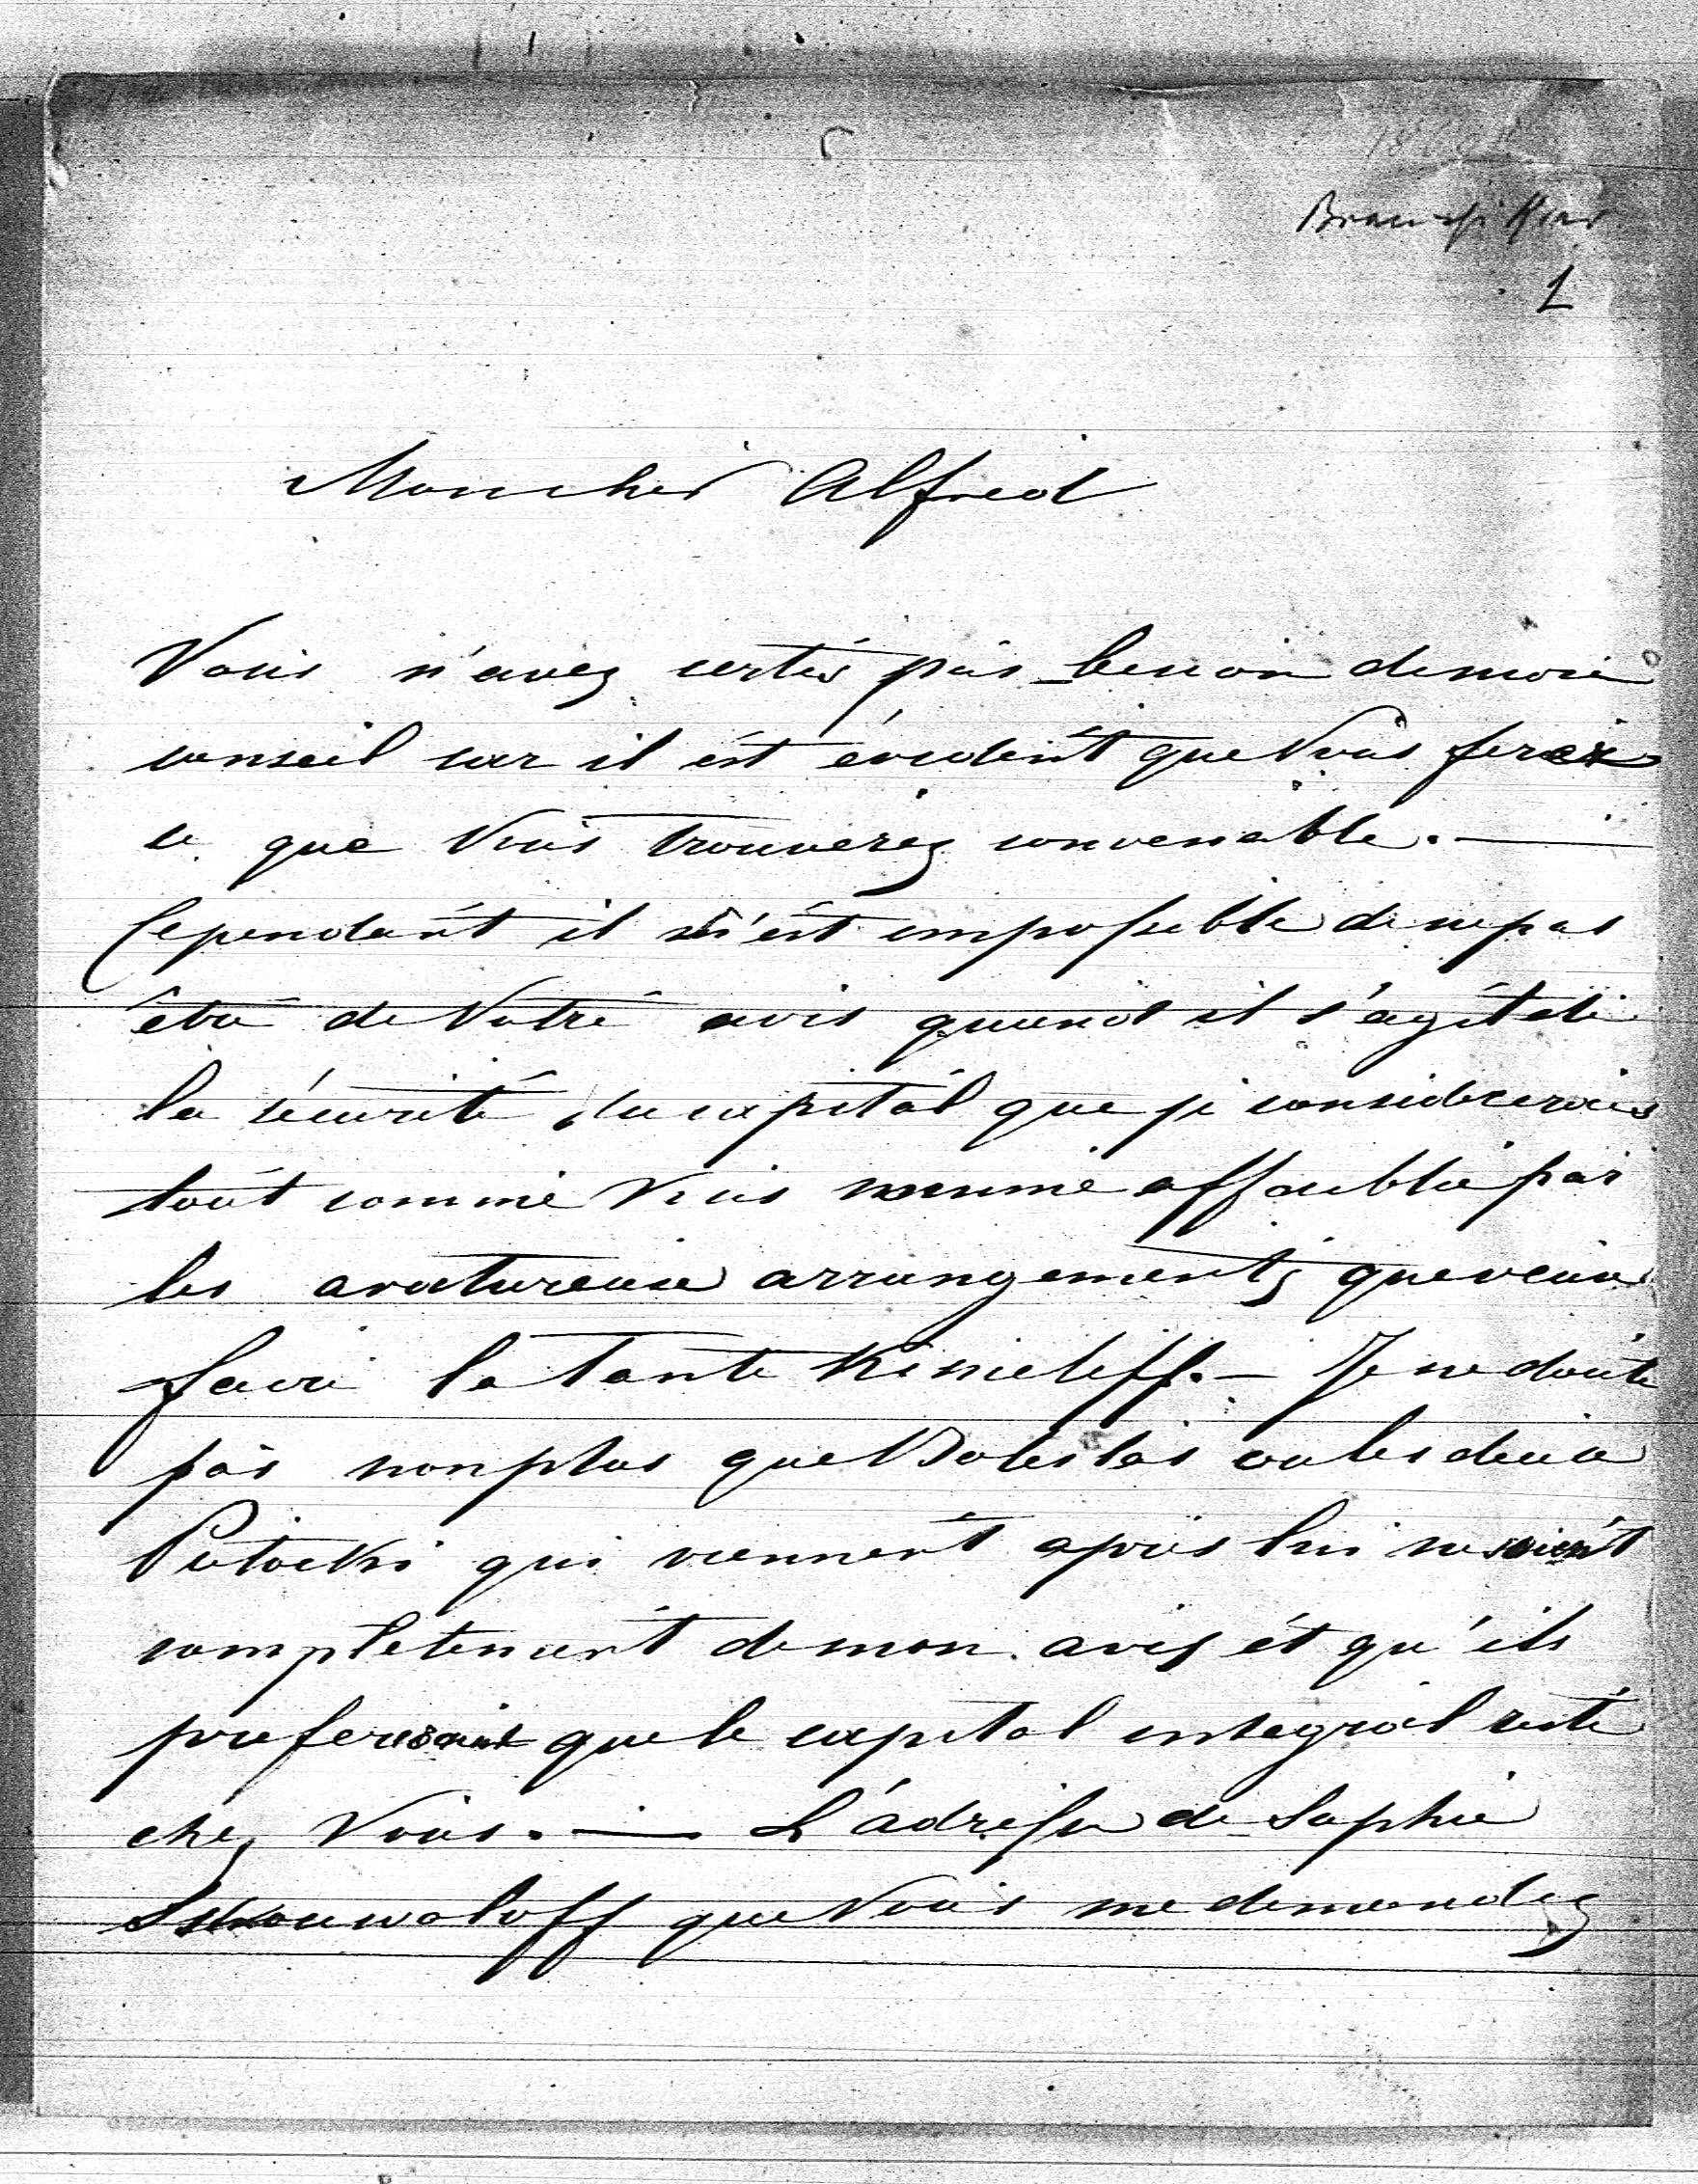 1
Mon cher Alfred
Vous n'avez certes pas besoin de mon
conseil car il est évident que Vous ferez
ce que Vous trouverez convenable. —
Cependant il m'est impossible de ne pas
être de Votre avis quand il s'agit de
la sécurité du capital que je considererais
tout comme Vous même affaiblie par
les avantureux arrangements que veux
faire la tante Kisieleff. — Je ne doute
pas non plus que Boleslas ou les deux
Potocki qui viennent après lui ne soient
completement de mon avis et qu'ils
preferesaint que le capital integral reste
chez Vous. — L'adresse de Sophie
Schouwaloff que Vous me demandez